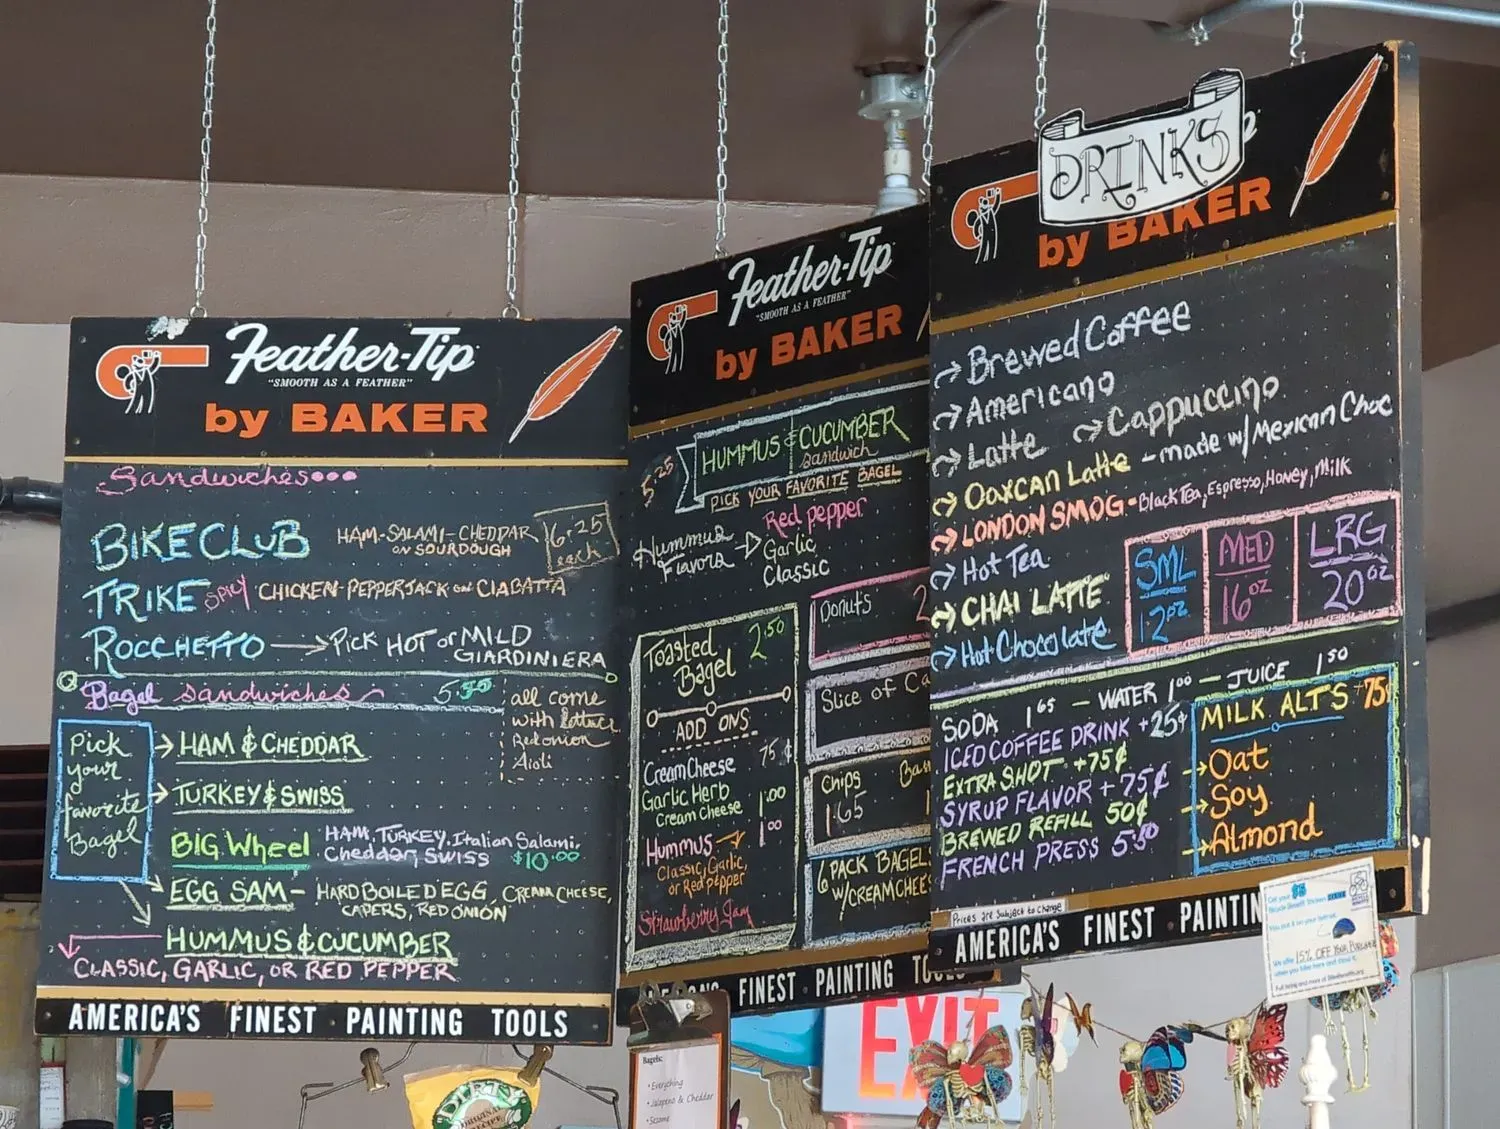 Feather-Tip
"SMOOTH AS A FEATHER"
by BAKER
Sandwiches...
BIKE CLUB HAM-SALAMI-CHEDDAR
on SOURDOUGH
6.25
each
TRIKE SPICY CHICKEN-PEPPERJACK on CIABATTA
ROCCHETTO → PICK HOT or MILD
GIARDINIERA
Bagel Sandwiches
all come
with lettuce
Red onion
Aioli
Pick
your
favorite
Bagel
→ HAM & CHEDDAR
→ TURKEY & SWISS
BIG Wheel HAM, TURKEY, Italian Salami,
Cheddar, SWISS $10.00
EGG SAM - HARD BOILED EGG, CREAM CHEESE,
CAPERS, RED ONION
HUMMUS & CUCUMBER
CLASSIC, GARLIC, OR RED PEPPER
AMERICA'S FINEST PAINTING TOOLS
Feather-Tip
"SMOOTH AS A FEATHER"
by BAKER
5.25
HUMMUS & CUCUMBER
Sandwich
PICK YOUR FAVORITE BAGEL
Hummus
Flavors →
Red pepper
Garlic
Classic
Toasted
Bagel 2.50
ADD ONS
Cream Cheese 75¢
Garlic Herb
Cream Cheese 1.00
Hummus → 1.00
Classic, Garlic,
or Red pepper
Strawberry Jam
Donuts
Slice of
Chips
1.65
6 PACK BAGELS
W/CREAM CHEES
FINEST PAINTING
DRINKS
by BAKER
Brewed Coffee
Americano
Latte Cappuccino
Oaxcan Latte - made w/ Mexican Choc
LONDON SMOG - Black Tea, Espresso, Honey, Milk
Hot Tea
CHAI LATTE
Hot Chocolate
SML
12oz
MED
16oz
LRG
20oz
SODA 1.65 - WATER 1.00 - JUICE 1.50
ICED COFFEE DRINK +25¢
EXTRA SHOT +75¢
SYRUP FLAVOR +75¢
BREWED REFILL 50¢
FRENCH PRESS 5.50
MILK ALT'S +75¢
→ Oat
→ Soy
→ Almond
Prices are Subject to Change
AMERICA'S FINEST PAINTIN
15% OFF Your Purchase
EXIT
Bagels:
• Everything
• Jalapeño & Cheddar
• Sesame
DIRTY